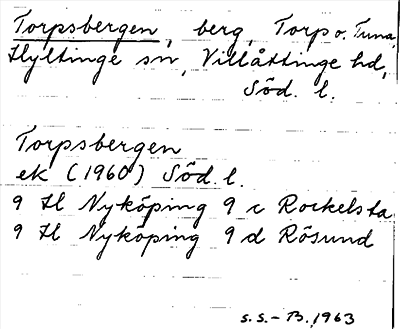 Torpsbergen, berg, Torp o. Tuna,
Hyltinge sn, Villåttinge hd,
Söd. l.
Torpsbergen
ek (1960) Söd. l.
9 H Nyköping 9 c Rockelsta
9 H Nyköping 9 d Rösund
S.S.-B. 1963